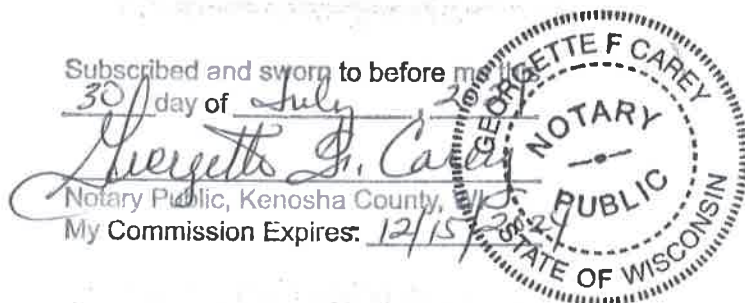 Subscribed and sworn to before me this
30 day of July, 20
Georgette F. Carey
Notary Public, Kenosha County, WI
My Commission Expires: 12/15/202
GEORGETTE F CAREY
NOTARY
PUBLIC
STATE OF WISCONSIN